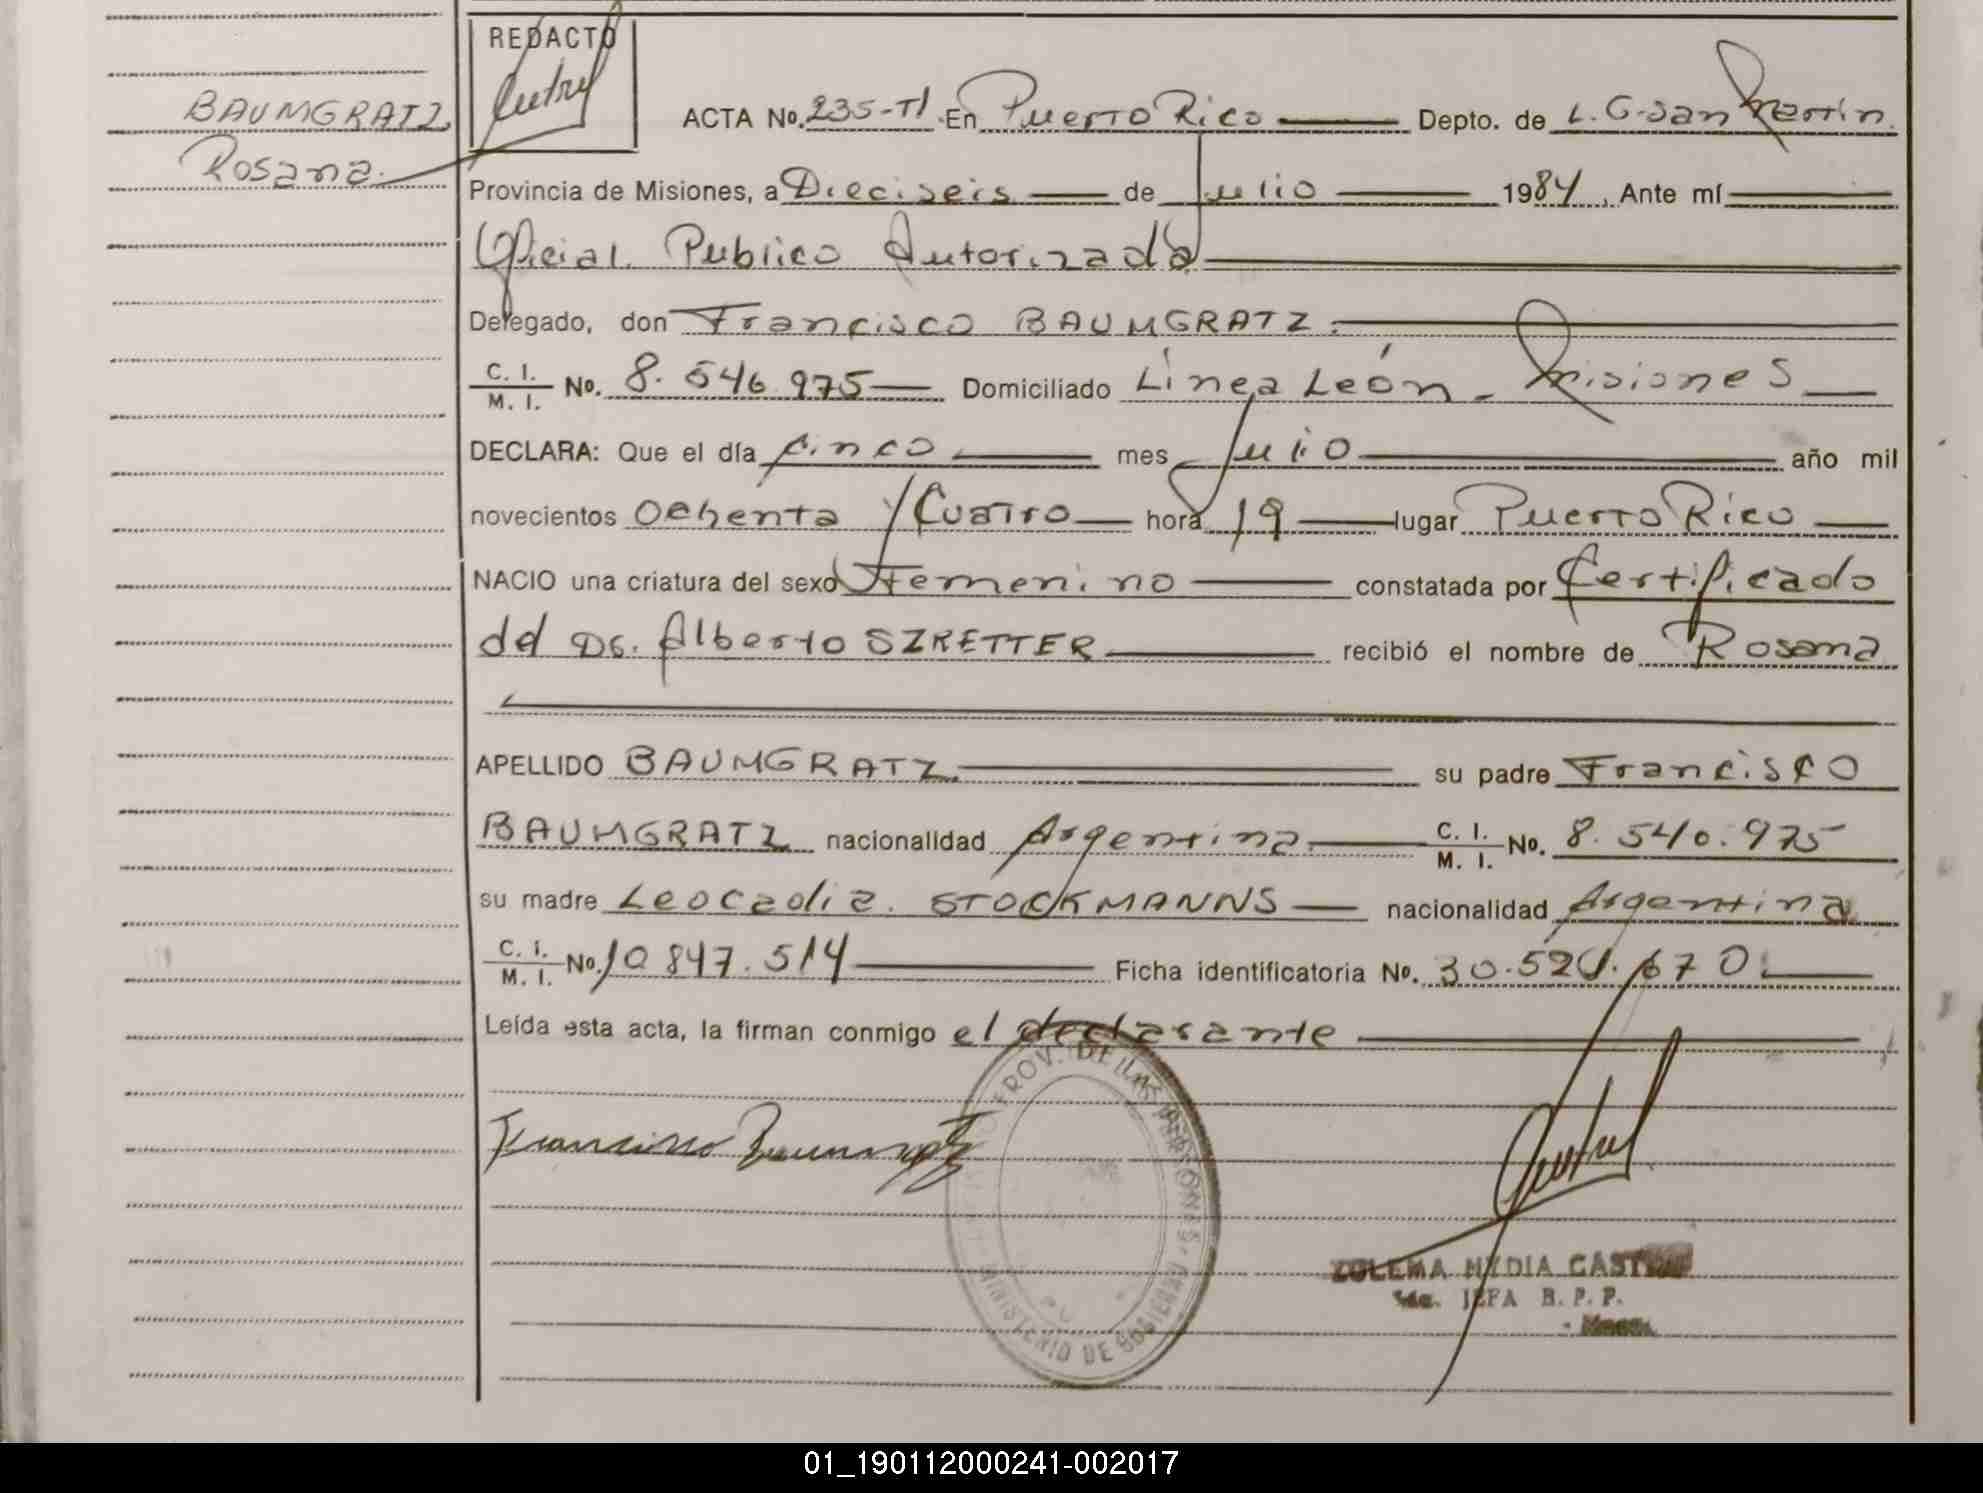 REDACTO
BAUMGRATZ,
Rosana.
ACTA No. 235-TI En Puerto Rico Depto. de L. G. San Martín.
Provincia de Misiones, a Dieciseis de Julio 1984, Ante mí
Oficial Publico Autorizada
Delegado, don Francisco BAUMGRATZ.
C. I.
M. I. No. 8.546.975 Domiciliado Línea León - Misiones
DECLARA: Que el día cinco mes Julio año mil
novecientos Ochenta y Cuatro hora 19 lugar Puerto Rico
NACIO una criatura del sexo Femenino constatada por Certificado
del Dr. Alberto SZRETTER recibió el nombre de Rosana
APELLIDO BAUMGRATZ su padre Francisco
BAUMGRATZ nacionalidad Argentina C. I.
M. I. No. 8.540.975
su madre Leocadia. STOCKMANNS nacionalidad Argentina
C. I.
M. I. No. 10.847.514 Ficha identificatoria No.
Leída esta acta, la firman conmigo el declarante
Francisco Baumgratz
PROV. DE MISIONES
MINISTERIO DE GOBIERNO
ZULEMA NYDIA
JEFA R. P. P.
01_190112000241-002017